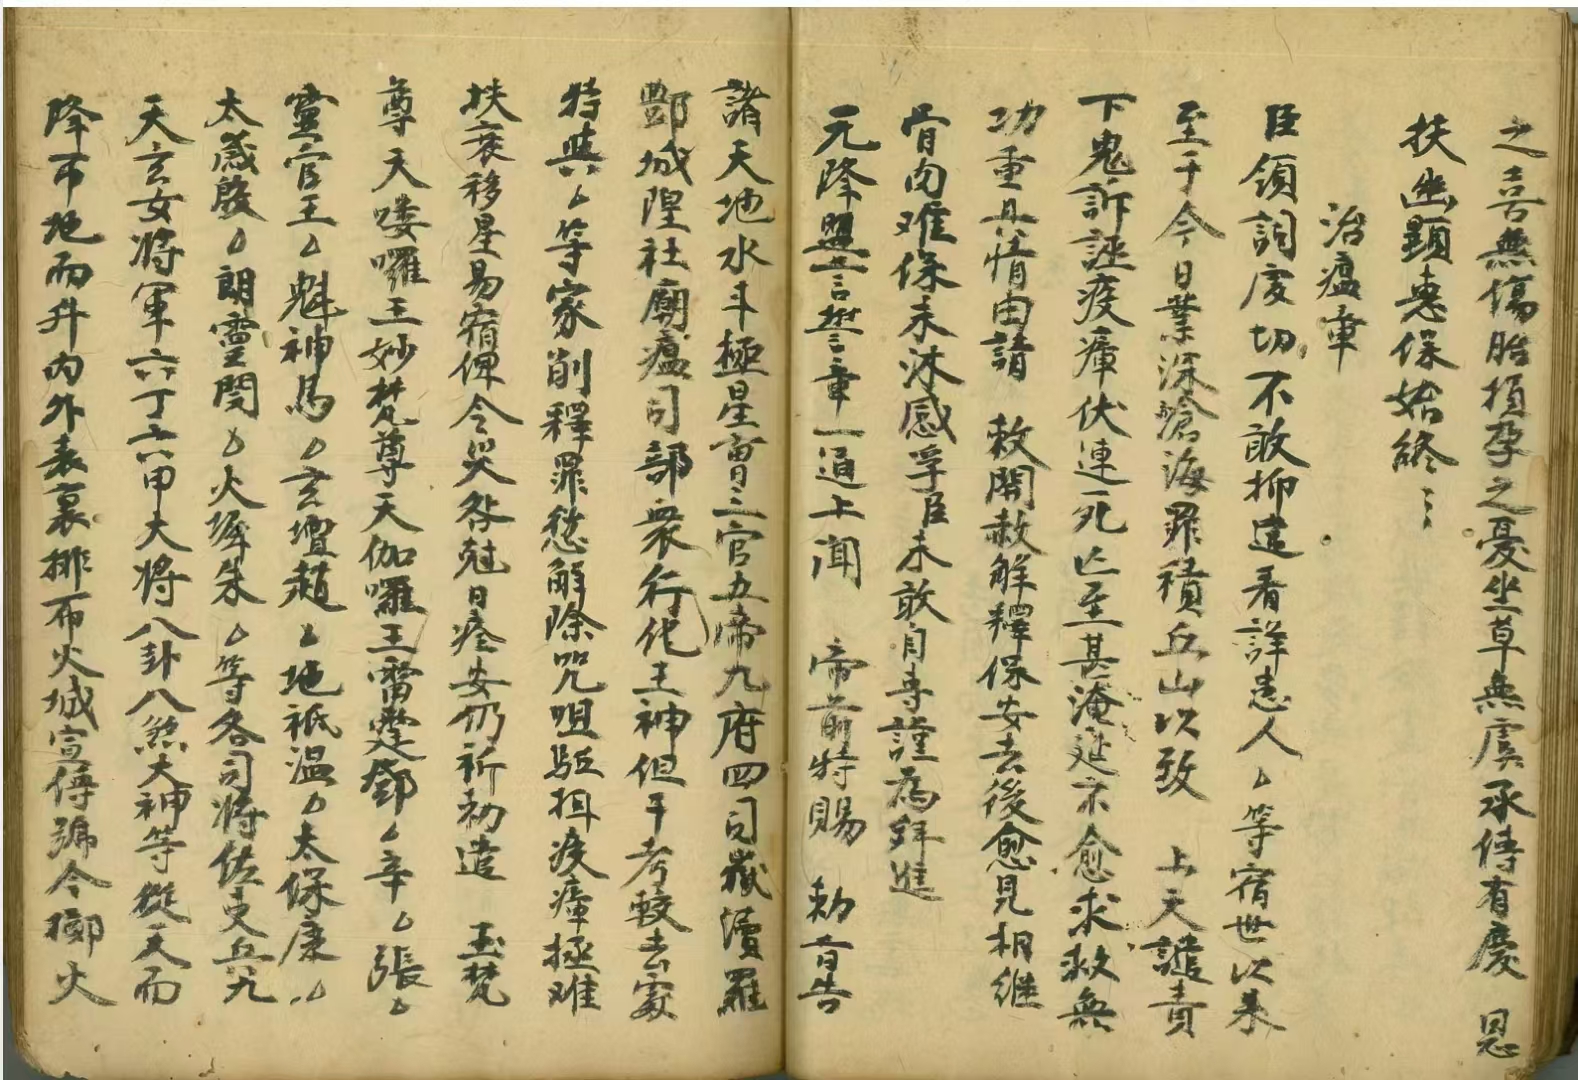 之喜無傷胎損孕之憂坐草無虞承傳有慶　恩
扶幽顕惠保始終〻
治瘟章
臣領詞虔切不敢抑違看詳患人厶等宿世以来
至于今日業深滄海罪積丘山以致　上天譴責
下鬼訴誣疫瘴伏連死亡至甚淹延不愈求救無
功重具情由請　救開赦解釋保安去後愈見相継
骨肉难保未沐感孚臣未敢自専謹為拜進
元降盟言禁章一通上聞　帝前特賜　勅旨告
諸天地水斗極星宿三官五帝九府四司嶽瀆羅
酆城隍社廟瘟司部衆行化王神但干考較去處
特與厶等家削釋罪愆解除咒咀駈押疫瘴拯难
扶衰移星易宿俾令災咎尅日痊安仍祈初遣　玉梵
尊天嘍囉王妙梵尊天伽囉王雷霆鄧厶辛厶張厶
靈官王厶魁神馬厶玄壇趙厶地祇温厶太保康厶
太歲殷厶朗靈関厶火犀朱厶等各司将佐吏兵九
天玄女将軍六丁六甲大将八卦八煞大神等從天而
降帀地而升内外表裏排布火城宣傳號令擲火